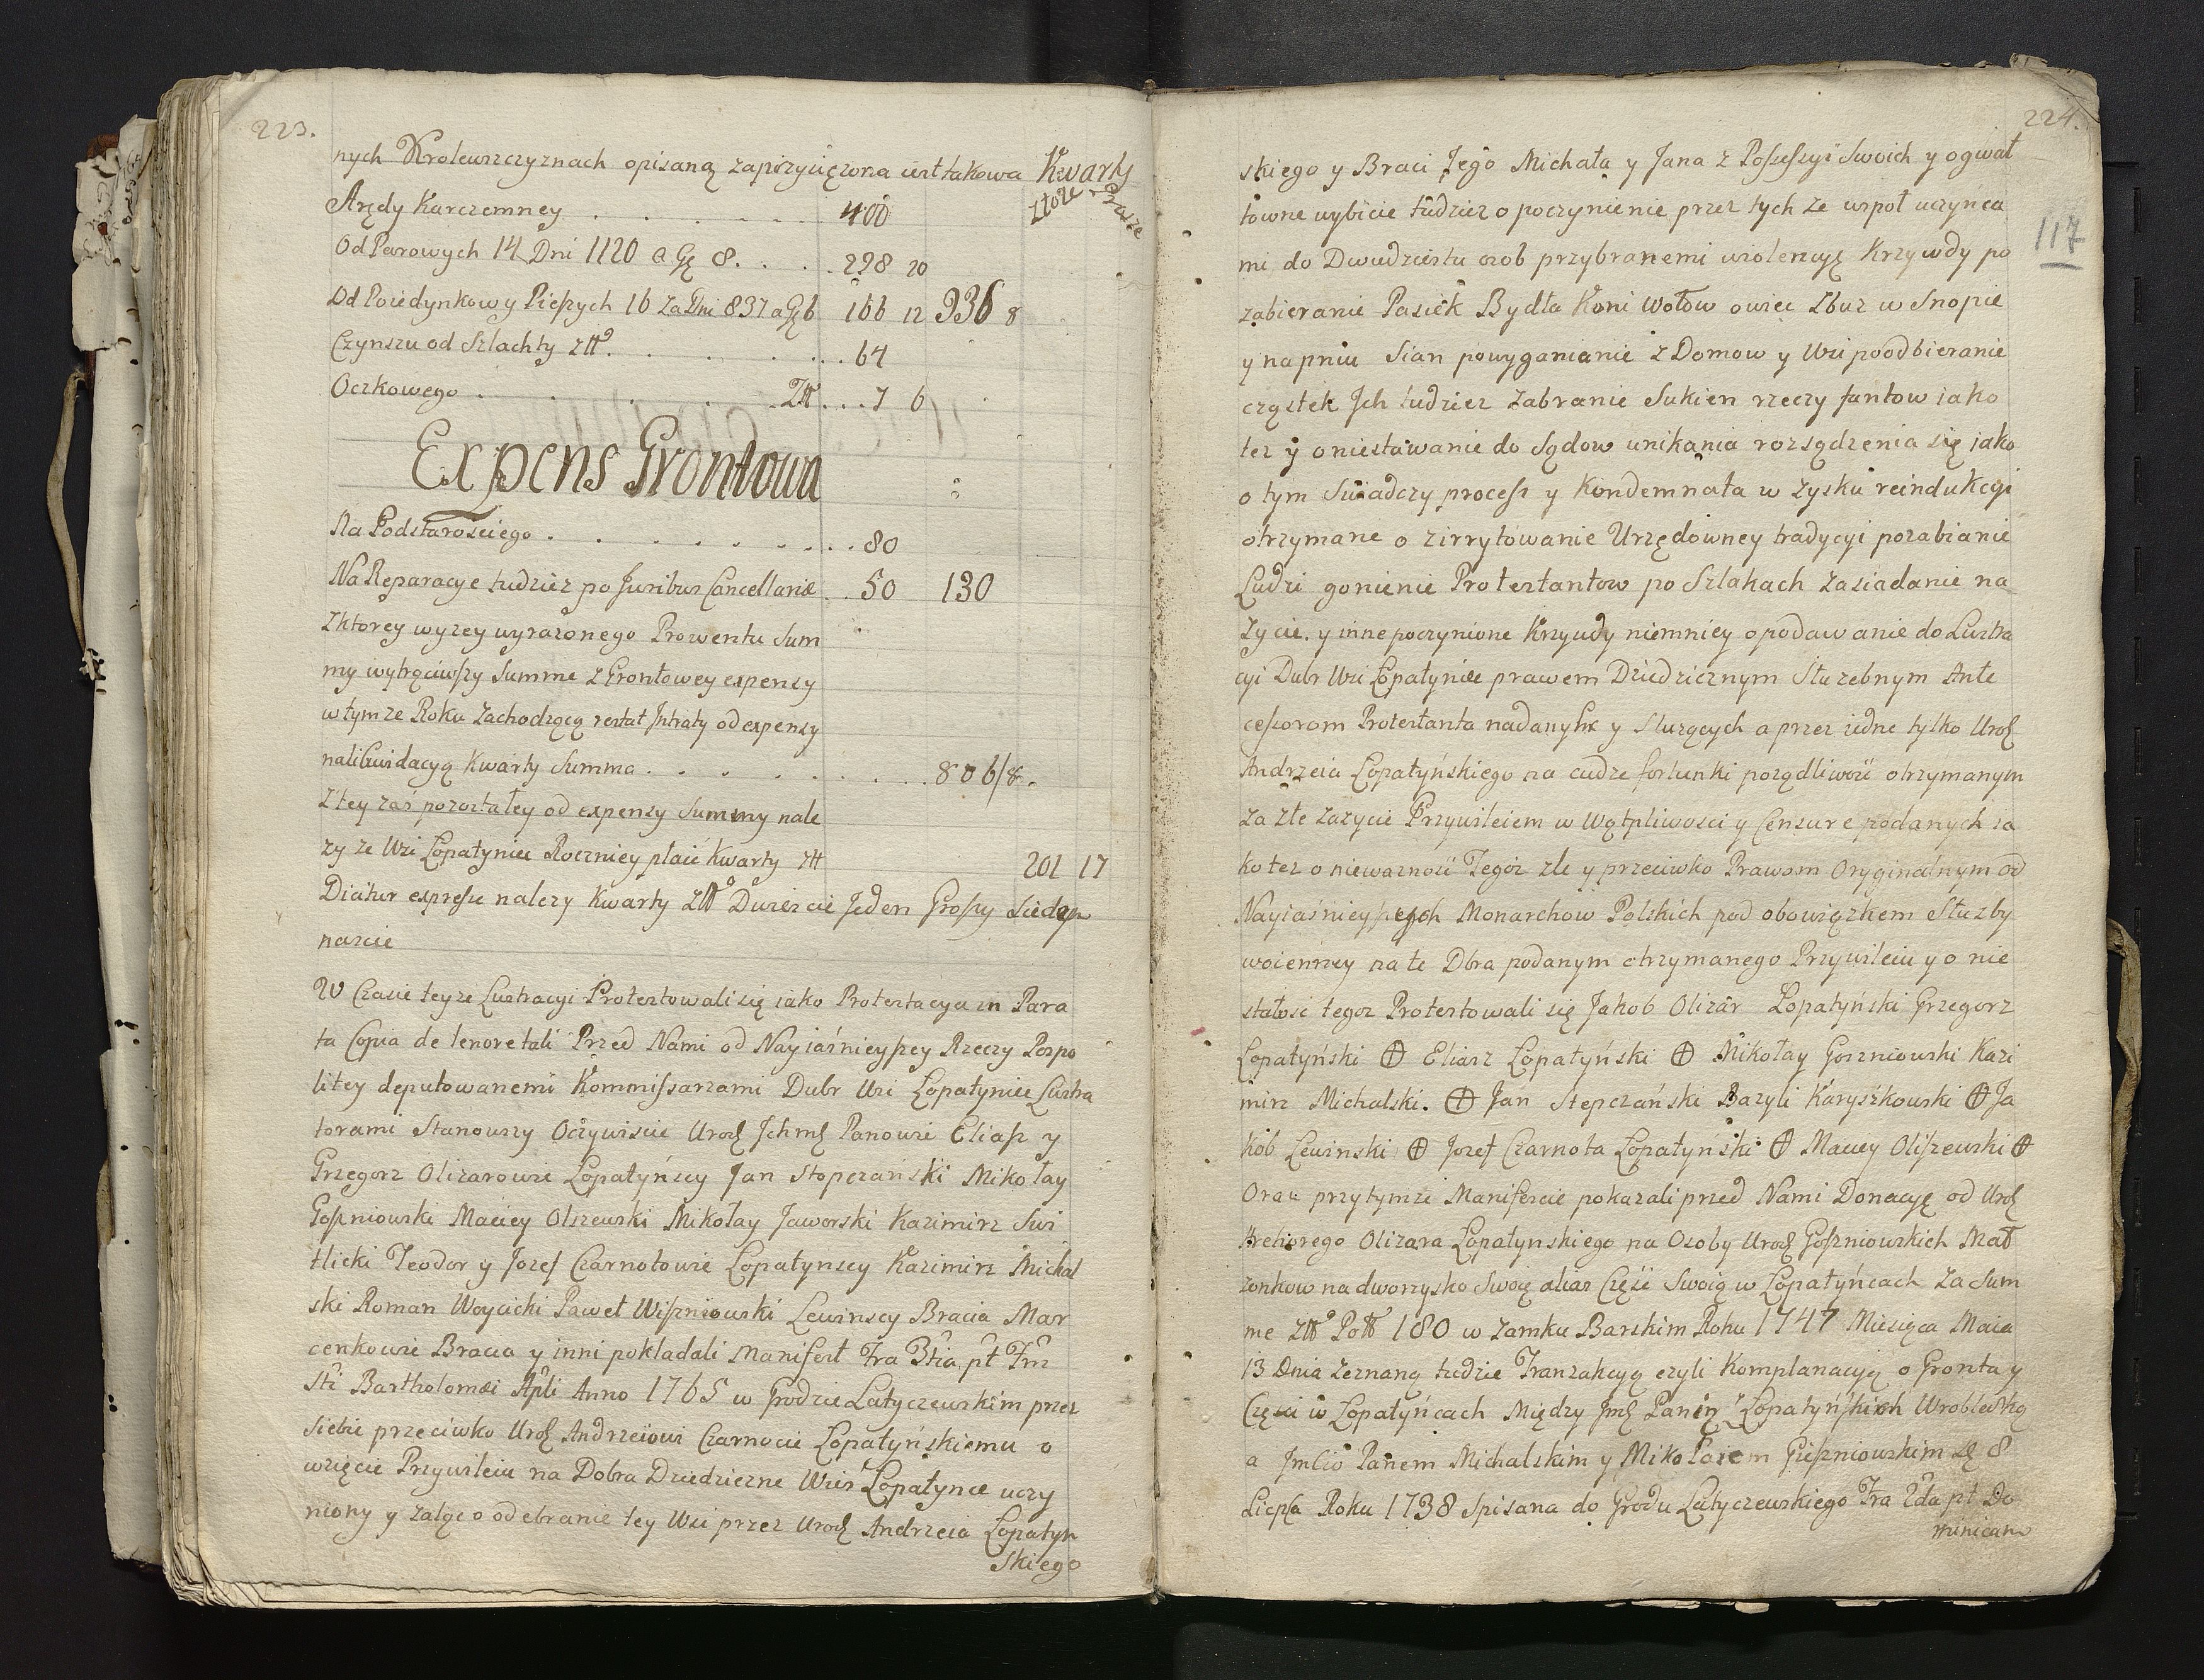 223.
nych Krolewszczyznach opisaną zaprzysięzona iest takowa Kwarty
Złote Grosze
Arędy Karczemney . . . . . 400
Od Parowych 14 Dni 1120 a Gę 8. . . . 298 20
Od Poiedynkowy Pieszych 16 Za Dni 837 a Gę 6 166 12 936 8
Czynszu od Szlachty złł. . . . . . . 64
Oczkowego . . . . . . Złł . . . 7 6
Expens Grontowa
Na Podstarosciego . . . . . . . . . . 80
Na Reparacye tudziez po Juribus Cancellariæ . . 50 130
Z ktorey wyzey wyrazonego Prowentu Sum
my wytrąciwszy Summe z Grontowey expensy
w tymze Roku zachodzącą restat Jntraty od expensy
na likwidacyą Kwarty Summa . . . . . . . . . 806/8.
Z tey zaś pozostałey od expensy Summy nale
zy ze Wsi Łopatyniec Roczniey płaić Kwarty złł 201 17
Dicitur expresse nalezy Kwarty Złł Dwiescie Jeden Groszy Siedm
nascie
W Czasie teyze Lustracyi Protestowali się iako Protestacya in Para
ta Copia de tenore tali Przed Nami od Nayiaśnieyszey Rzeczy Pospo
litey deputowanemi Kommissarzami Dubr Wsi Łopatyniec Lustra
torami Stanowszy Oczywiscie Urodz Jchmć Panowie Eliasz y
Grzegorz Olizarowie Łopatyńscy Jan Stopczański Mikołay
Goszniowski Maciey Olszewski Mikołay Jaworski Kazimirz Swi
tlicki Teodor y Jozef Czarnotowie Łopatynscy Kazimirz Michal
ski Roman Woycicki Paweł Wiszniowski Lewinscy Bracia Mar
cenkowie Bracia y inni pokladali Manifest Fra 3tia pt Fm
Sti Bartholomæi Apli Anno 1765 w Grodzie Latyczewskim przez
siebie przeciwko Urodz Andrzeiowi Czarnocie Łopatyńskiemu o
wzięcie Przywileiu na Dobra Dziedziczne Wies Łopatynce uczy
niony y zaląc o odebranie tey Wsi przez Urodz Andrzeia Łopatyn
skiego
224.
117
skiego y Braci Jego Michała y Jana z Possessyi Swoich y o gwał
towne wybicie tudziez o poczynienie przez tych ze wspoł uczyńca
mi do Dwudziestu osob przybranemi wiolencyę Krzywdy po
zabieranie Pasiek Bydła Koni Wołow owiec Zbuz w Snopie
y na pniu Sian powyganianie z Domow y Wsi poodbieranie
cząstek Jch tudziez zabranie Sukien rzeczy fantow iako
tez y o niestawanie do Sądow unikania rozsądzenia się jako
o tym Swiadczy process y Kondemnata w zysku reindukcyi
otrzymane o zirrytowanie Urzędowney tradycyi pozabianie
Ludzi gonienie Protestantow po Szlakach zasiadanie na
Zycie. y inne poczynione Krzywdy niemniey o podawanie do Lustra
cyi Dubr Wsi Łopatyniec prawem Dziedzicznym Słuzebnym Ante
cessorom Protestanta nadanych y sluzących a przez iedne tylko Urodz
Andrzeia Łopatyńskiego na cudze fortunki poządliwość otrzymanym
za złe zazycie Przywileiem w Wątpliwosci y Censure podanych ia
ko tez o niewaznosć Tegoz zle y przeciwko Prawom Oryginalnym od
Nayiaśnieyszych Monarchow Polskich pod obowiązkem Słuzby
woienney na te Dbra podanym otrzymanego Przywileiu y o nie
stałosc tegoz Protestowali się Jakob Olizar Łopatyński Grzegorz
Łopatyński ⊕ Eliasz Łopatyński ⊕ Mikołay Goszniowski Kazi
mirz Michalski. ⊕ Jan Stepczański Bazyli Karyszkowski ⊕ Ja
kob Lewinski ⊕ Jozef Czarnota Łopatyński ⊕ Maciey Oliszewski ⊕
Oraz przytymze Manifescie pokazali przed Nami Donacyę od Urodz
Hrehorego Olizara Łopatynskiego na Osoby Urodz Goszniowskich Mał
zonkow na dworzysko Swoię alias Część Swoią w Łopatyńcach za Sum
me Złł Poll 180 w Zamku Barskim Roku 1747 Miesiąca Maia
13 Dnia zeznaną tudzie Tranzakcyą czyli Komplanacyią o Gronta y
Części w Łopatyńcach Między Jmć Panią Łopatyńskich Wroblewską
a Jmścio Panem Michalskim y Mikołaiem Giszniowskim Dę 8
Liepca Roku 1738 Spisana do Grodu Latyczewskiego Fra 2da pt Do
minicam